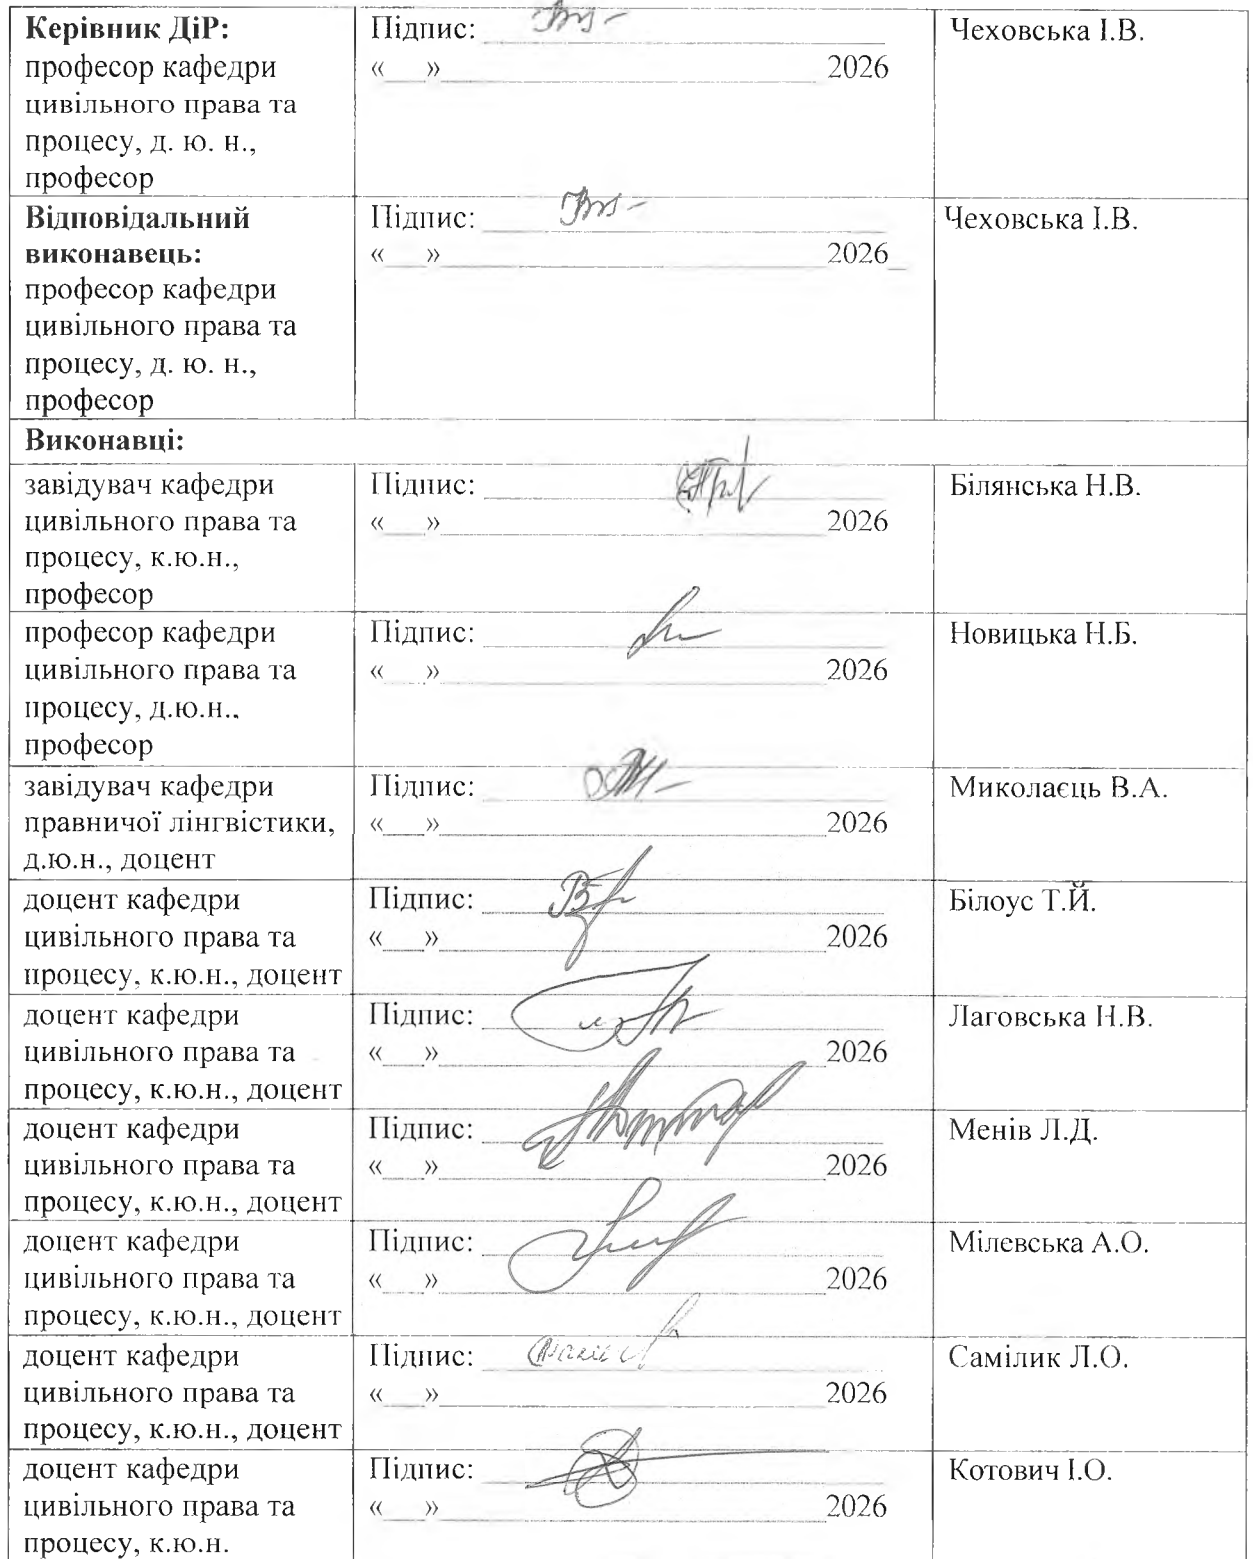 Керівник ДіР:
професор кафедри
цивільного права та
процесу, д. ю. н.,
професор
Підпис:
«___»____ 2026
Чеховська І.В.
Відповідальний
виконавець:
професор кафедри
цивільного права та
процесу, д. ю. н.,
професор
Підпис:
«___»____ 2026_
Чеховська І.В.
Виконавці:
завідувач кафедри
цивільного права та
процесу, к.ю.н.,
професор
Підпис:
«___»____ 2026
Білянська Н.В.
професор кафедри
цивільного права та
процесу, д.ю.н.,
професор
Підпис:
«___»____ 2026
Новицька Н.Б.
завідувач кафедри
правничої лінгвістики,
д.ю.н., доцент
Підпис:
«___»____ 2026
Миколаєць В.А.
доцент кафедри
цивільного права та
процесу, к.ю.н., доцент
Підпис:
«___»____ 2026
Білоус Т.Й.
доцент кафедри
цивільного права та
процесу, к.ю.н., доцент
Підпис:
«___»____ 2026
Лаговська Н.В.
доцент кафедри
цивільного права та
процесу, к.ю.н., доцент
Підпис:
«___»____ 2026
Менів Л.Д.
доцент кафедри
цивільного права та
процесу, к.ю.н., доцент
Підпис:
«___»____ 2026
Мілевська А.О.
доцент кафедри
цивільного права та
процесу, к.ю.н., доцент
Підпис:
«___»____ 2026
Самілик Л.О.
доцент кафедри
цивільного права та
процесу, к.ю.н.
Підпис:
«___»____ 2026
Котович І.О.